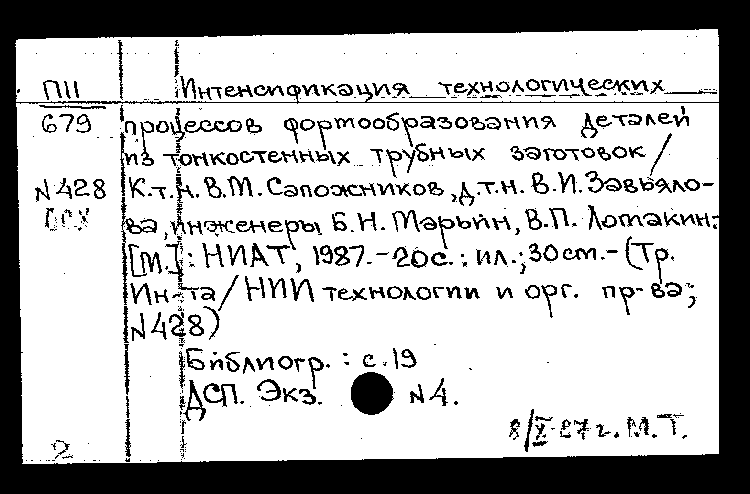 П11
Интенсификация технологических
679 процессов формообразования деталей
из тонкостенных трубных заготовок/
N428 К.т.н. В.М. Сапожников, д.т.н. В.И. Завьяло-
ДСХ ва, инженеры Б.Н. Марьин, В.П. Ломакин.
[М.]: НИАТ, 1987.-20с.: ил.; 30 cm.-(Тр.
Ин-та/НИИ технологии и орг. пр-ва;
N428)
Библиогр.: с.19
ДСП. Экз. N4.
8/X-87 г. М.Т.
2